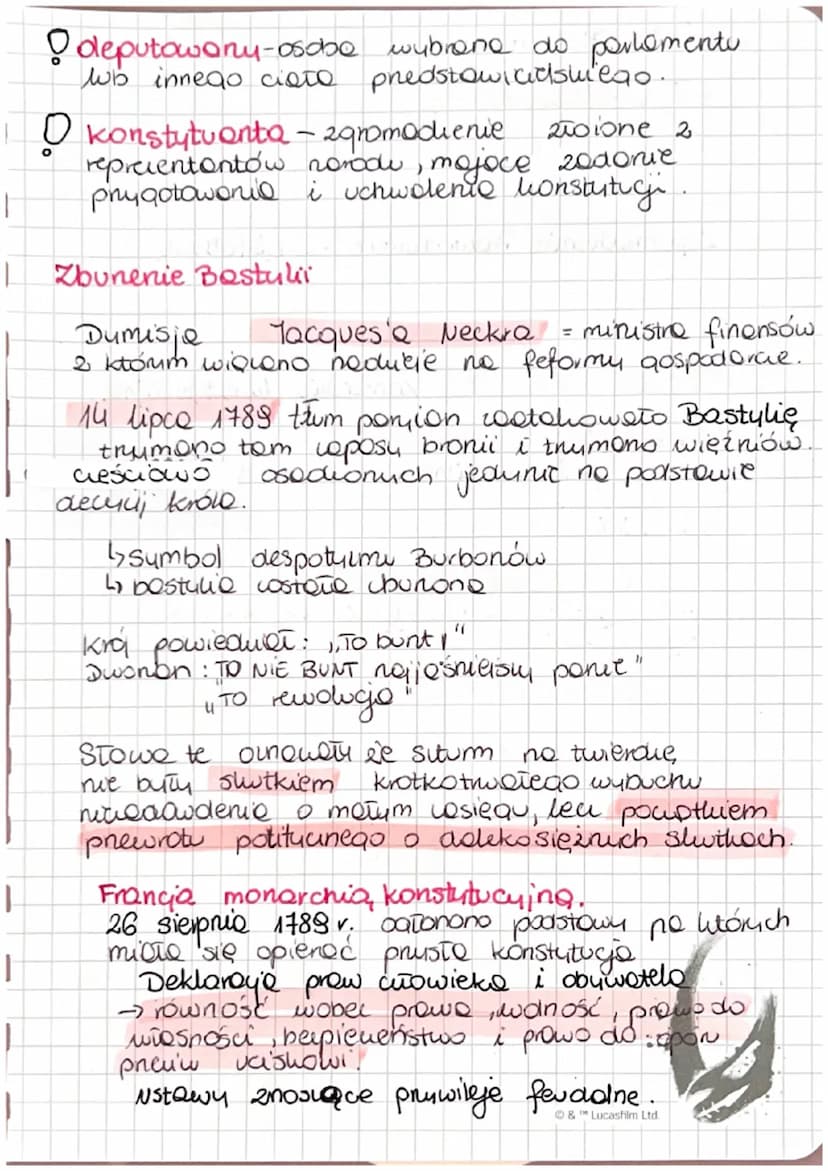 ! deputowany - osoba wybrana do parlamentu
lub innego ciała przedstawicielskiego.
! konstytuanta - zgromadzenie złożone z
reprezentantów narodu, mające zadanie
przygotowania i uchwalenie konstytucji.
Zburzenie Bastylii
Dymisja Jacques'a Neckra = ministra finansów
z którym wiązano nadzieje na feformy gospodarcze.
14 lipca 1789 tłum paryżan zaatakowało Bastylię
trzymano tam zapasy broni i trzymano więźniów.
częściowo osadzonych jedynie na podstawie
decyzji króla.
↳ symbol despotyzmu Burbonów
↳ bastylia została zburzona
Król powiedział: „To bunt!"
Dworzan: TO NIE BUNT najjaśniejszy panie"
„TO rewolucja"
Słowa te oznaczały że szturm na twierdzę
nie były skutkiem krótkotrwałego wybuchu
niezadowolenia o małym zasięgu, lecz początkiem
przewrotu politycznego o dalekosiężnych skutkach.
Francja monarchią konstytucyjną.
26 sierpnia 1789 r. ogłoszono podstawy na których
miała się opierać przyszła konstytucja
Deklaracja praw człowieka i obywatela
→ równość wobec prawa, wolność, prawo do
własności, bezpieczeństwo i prawo do: opór
przeciw uciskowi.
Ustawy znoszące przywileje feudalne.
© & ™ Lucasfilm Ltd.